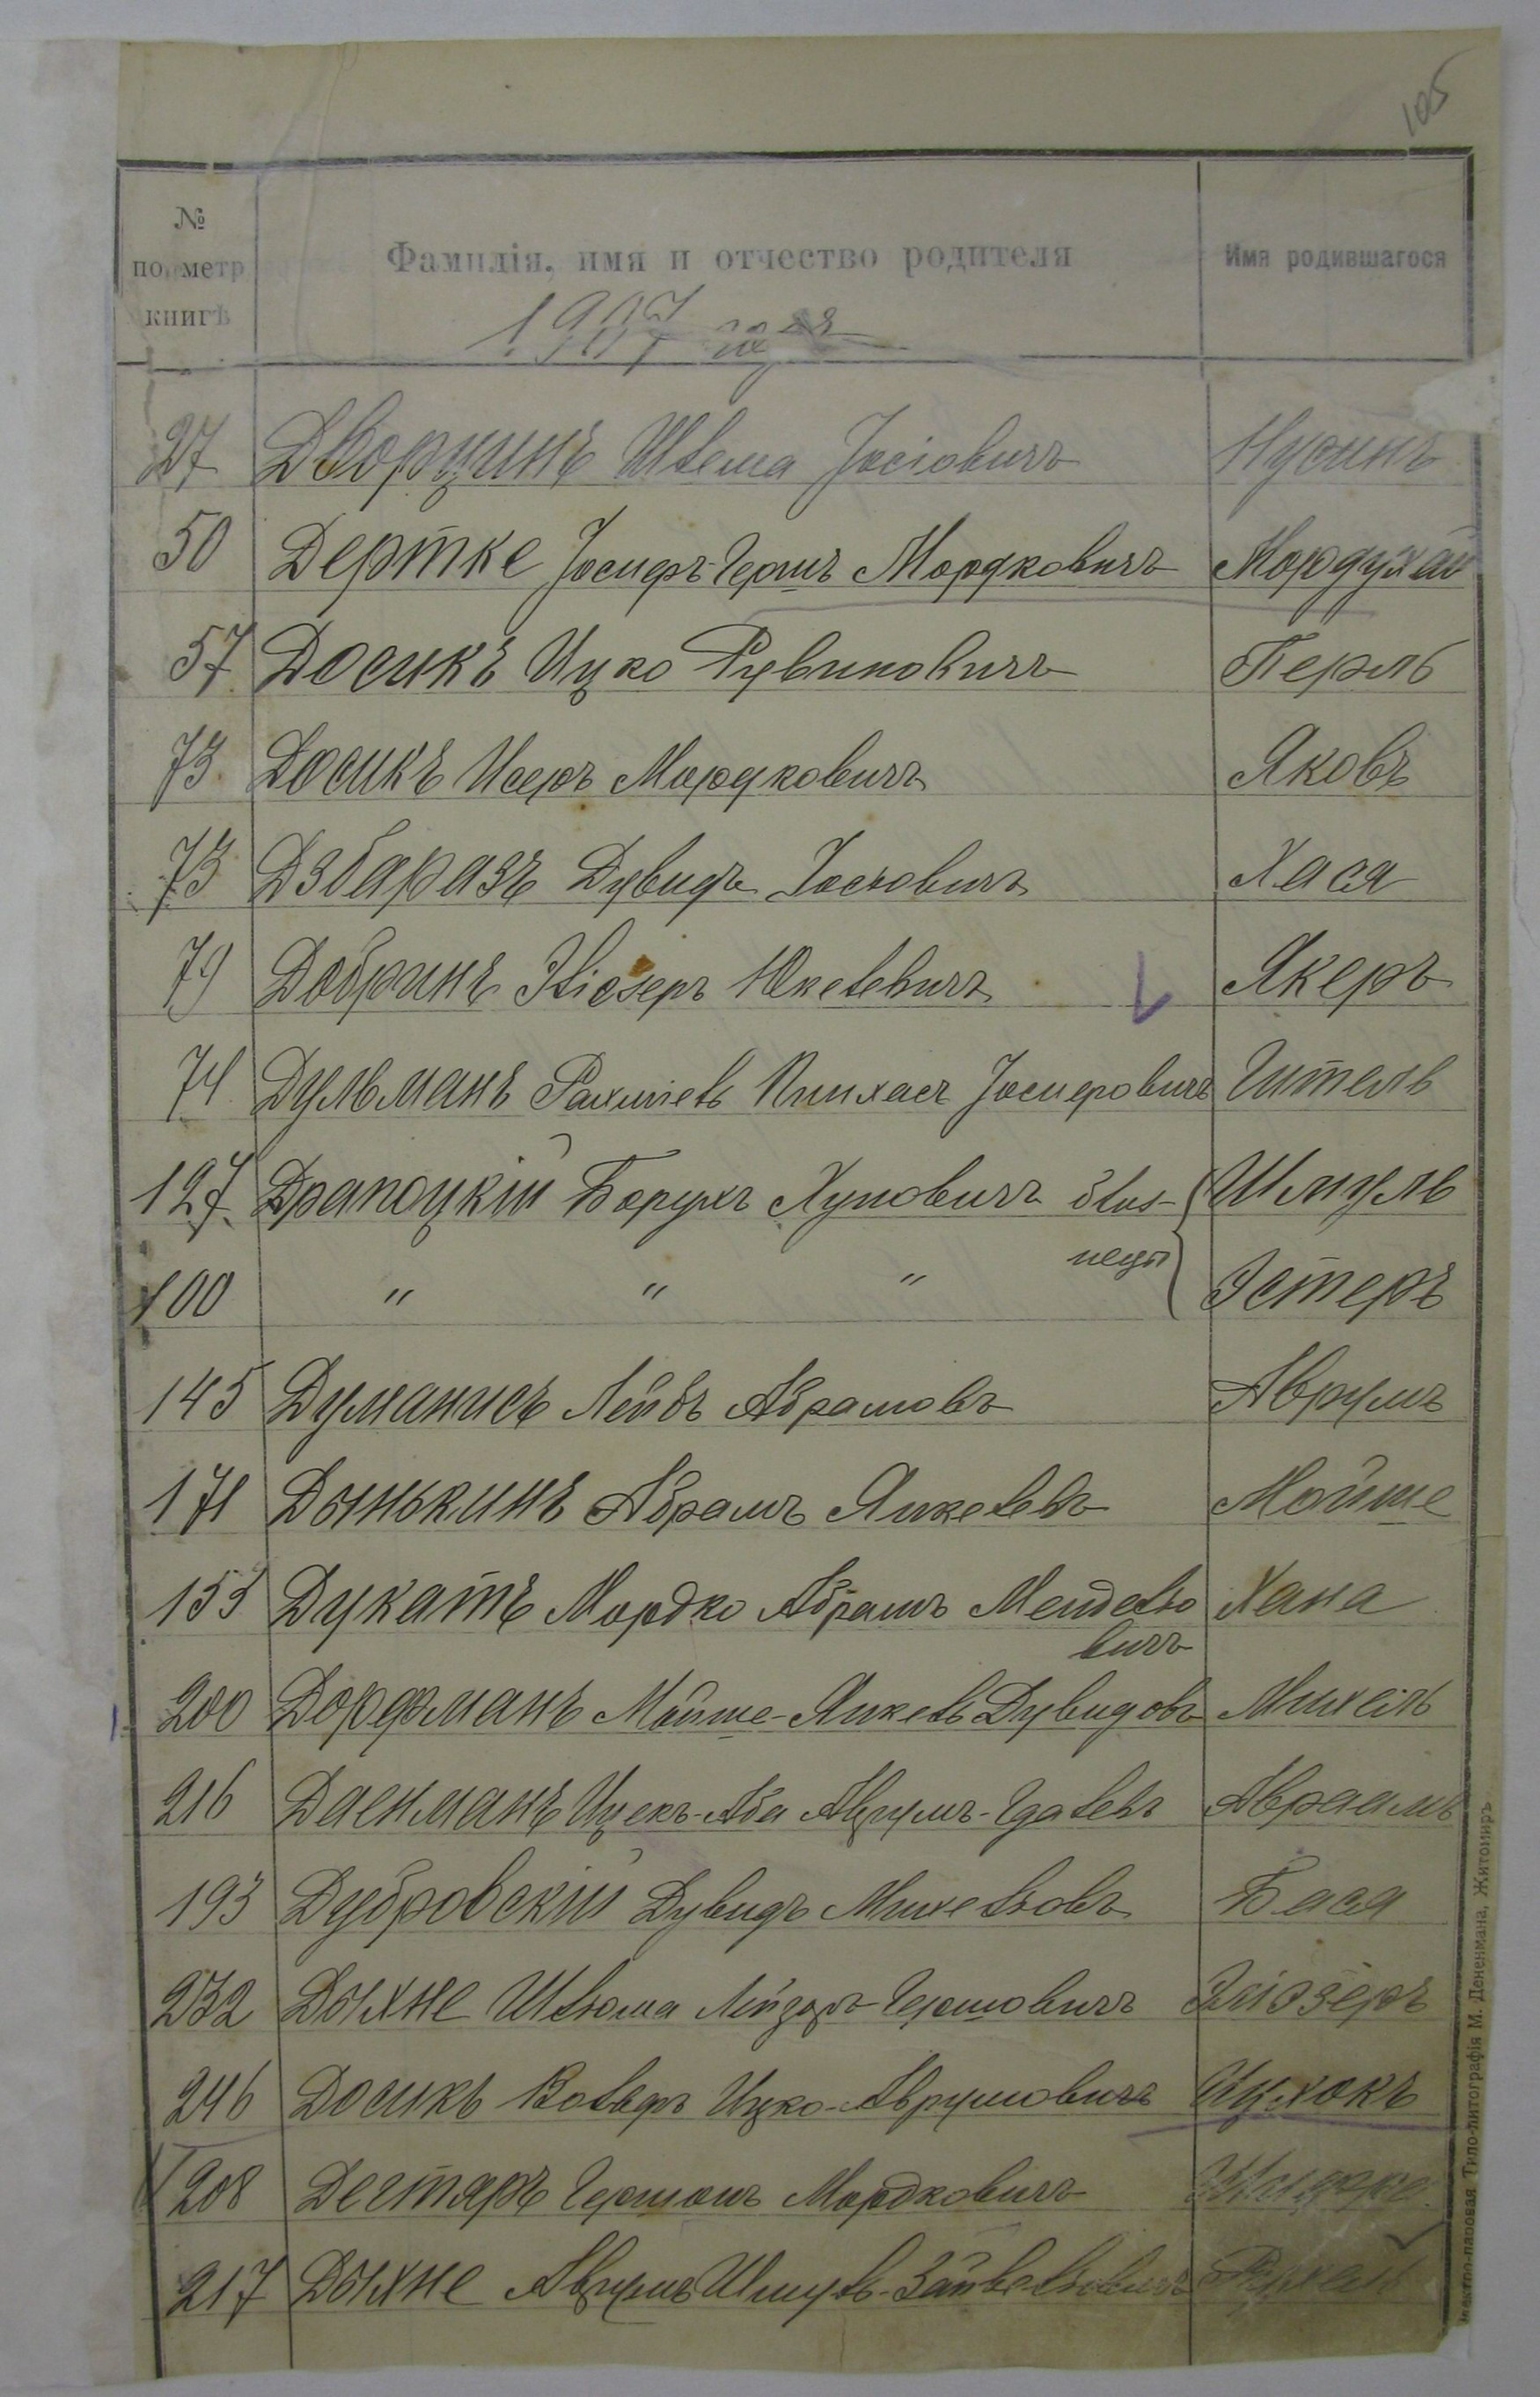 105
№ по метр книгѣ Фамилія, имя и отчество родителя Имя родившагося
1907 года
27 Дворцинъ Шлема Іосіовичъ Нусинъ
50 Дертке Іосифъ-Гершъ Мордковичъ Мордухай
57 Досикъ Ицко Рувиновичъ Перль
73 Досикъ Исеръ Мордковичъ Яковъ
73 Дзбаразъ Дувидъ Іосьовичъ Хася
79 Добринъ Эліозеръ Юкелевичъ Якеръ
74 Дульманъ Рахміель Пинхасъ Іосифовичъ Гитель
127 Драпоцкій Борухъ Хуновичъ близ- Шмуль
100 " " " нецы Эстеръ
145 Думанисъ Лейбъ Абрамовъ Аврумъ
171 Дынькинъ Абрамъ Янкелевъ Мойше
155 Дукатъ Мордко Абрамъ Мендельо Хана
вичъ
200 Дорфманъ Мойше-Янкель Дувидовъ Михель
216 Даенманъ Ицекъ-Аба Аврумъ-Гдалевъ Авраамъ
193 Дубровскій Дувидъ Михельовъ Бася
232 Дыхне Шльома Лейзоръ-Гершовичъ Эліэзеръ
246 Досикъ Вольфъ Ицко-Аврумовичъ Ицхокъ
208 Дегтяръ Гершонъ Мордковичъ
217 Дыхне Аврумъ Шмуль-Зайвельовичъ Рухель
паровая Типо-литографія М. Дененмана, Житомиръ.